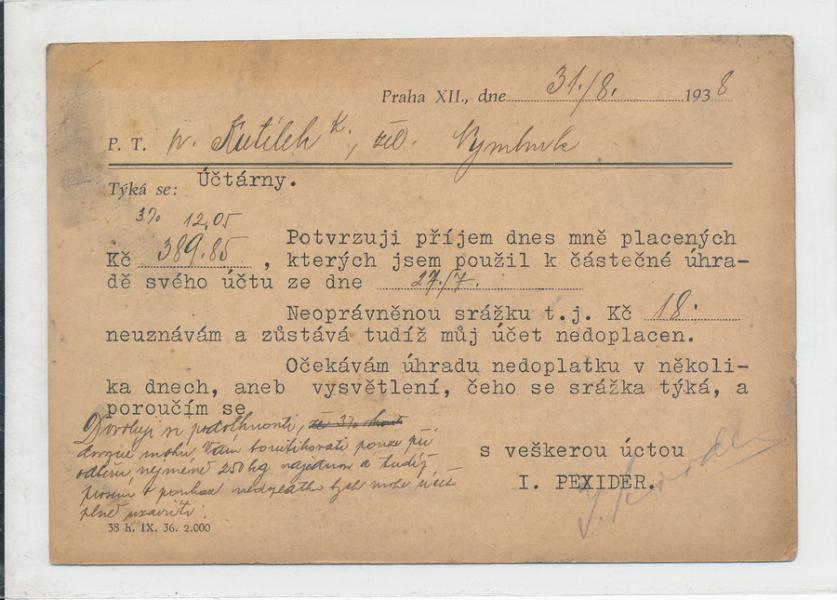 Praha XII., dne 31./8. 1938
P. T. p. Kutílek K., žel. Nymburk
Týká se: Účtárny.
3% 12.05
Potvrzuji příjem dnes mně placených
Kč 389.85, kterých jsem použil k částečné úhra-
dě svého účtu ze dne 27./7.
Neoprávněnou srážku t.j. Kč 18.
neuznávám a zůstává tudíž můj účet nedoplacen.
Očekávám úhradu nedoplatku v několi-
ka dnech, aneb vysvětlení, čeho se srážka týká, a
poroučím se
Dovoluji si podotknouti,
mohu Vám pouze při
nejméně 250 kg najednou a tudíž
prosím o nedoplatku bych mohl účet
plně
s veškerou úctou
I. PEXIDER.
38 h. IX. 36. 2.000